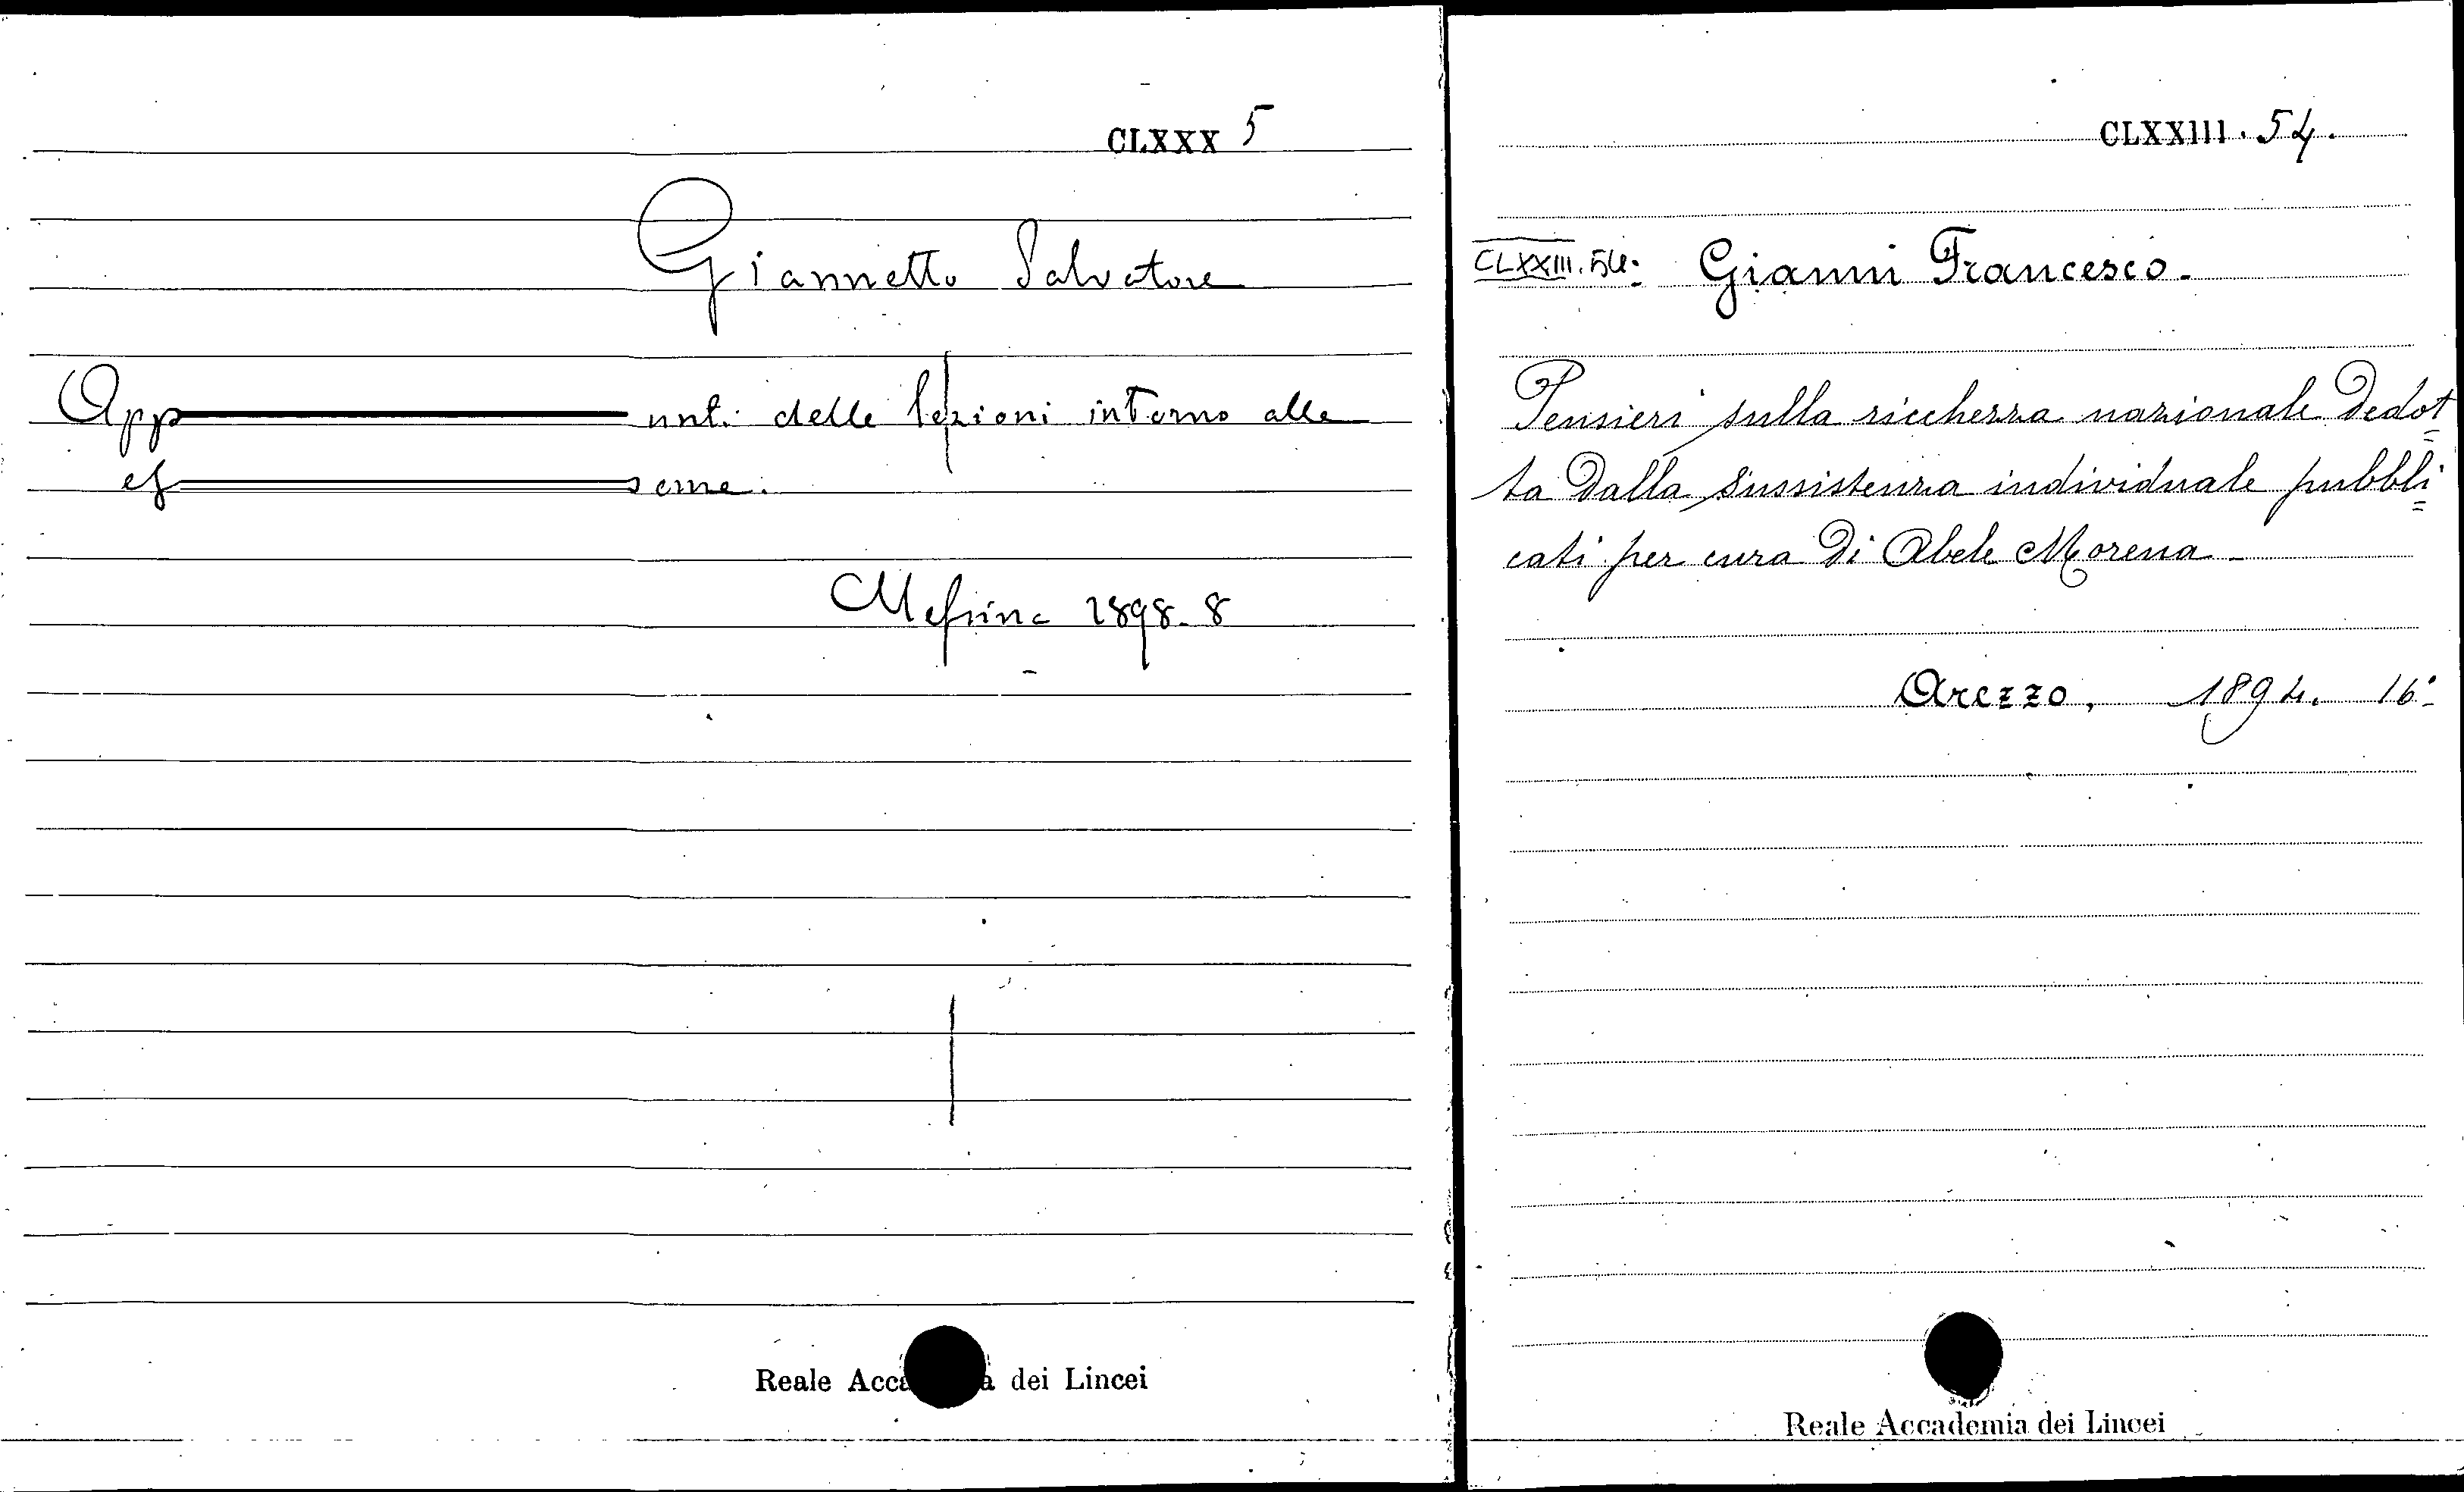 CLXXX 5
Giannetto Salvatore
Appunti delle lezioni intorno alle
esseme.
Messina 1898-8
Reale Acca a dei Lincei
CLXXIII. 54.
CLXXIII. 54. Gianni Francesco.
Pensieri sulla ricchezza nazionale dedot=
ta dalla sussistenza individuale pubbli=
cati per cura di Abele Morena
Arezzo, 1894. 16°
Reale Accademia dei Lincei